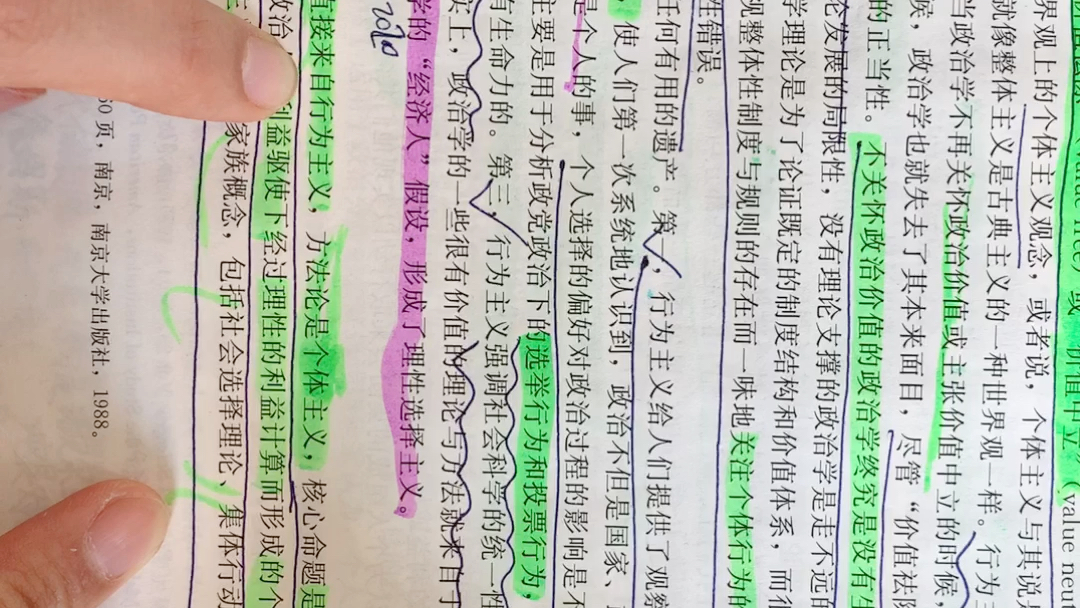 value free) 或“价值中立”(value neu
界观上的个体主义观念，或者说，个体主义与其说
就像整体主义是古典主义的一种世界观一样。行为
当政治学不再关怀政治价值或主张价值中立的时候
候，政治学也就失去了其本来面目，尽管“价值祛
的正当性。不关怀政治价值的政治学终究是没有生
论发展的局限性，没有理论支撑的政治学是走不远的
学理论是为了论证既定的制度结构和价值体系，而
观整体性制度与规则的存在而一味地关注个体行为的
性错误。
任何有用的遗产。第一，行为主义给人们提供了观察
，使人们第一次系统地认识到，政治不但是国家、
是个人的事，个人选择的偏好对政治过程的影响是不
主要是用于分析政党政治下的选举行为和投票行为，
有生命力的。第三，行为主义强调社会科学的统一性
实上，政治学的一些很有价值的理论与方法就来自于
学的“经济人”假设，形成了理性选择主义。
2020
直接来自行为主义，方法论是个体主义，核心命题是
政治 利益驱使下经过理性的利益计算而形成的个
家族概念，包括社会选择理论、集体行动
50页，南京，南京大学出版社，1988。